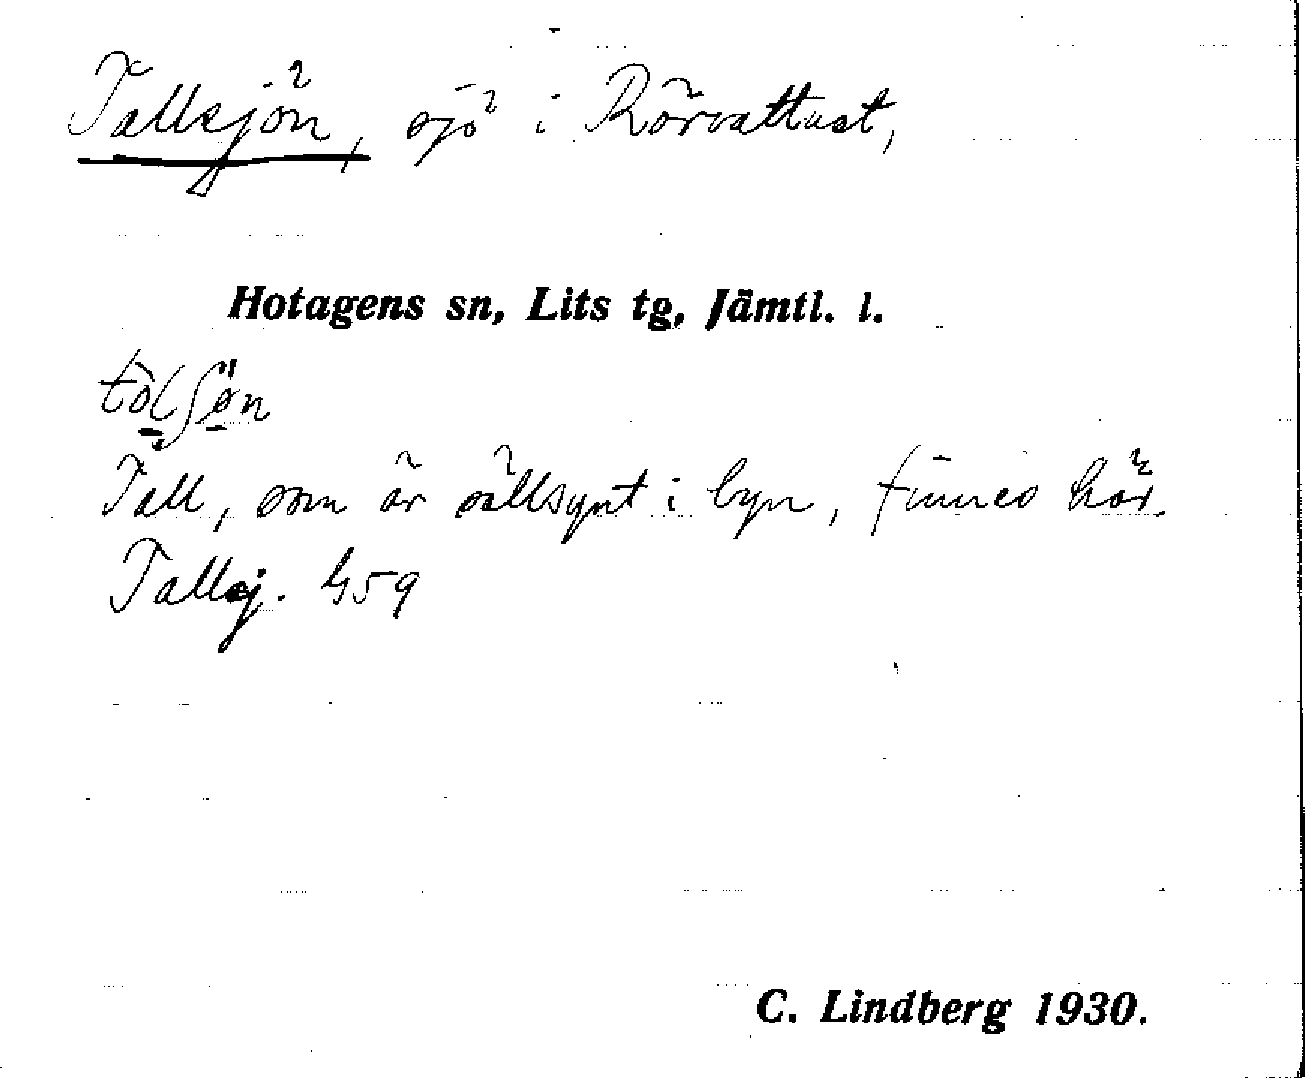 Tallsjön, sjö i Rörvattnet,
Hotagens sn, Lits tg, Jämtl. l.
Tall, som är sällsynt i byn, finnes här.
Tallsj. G59
C. Lindberg 1930.